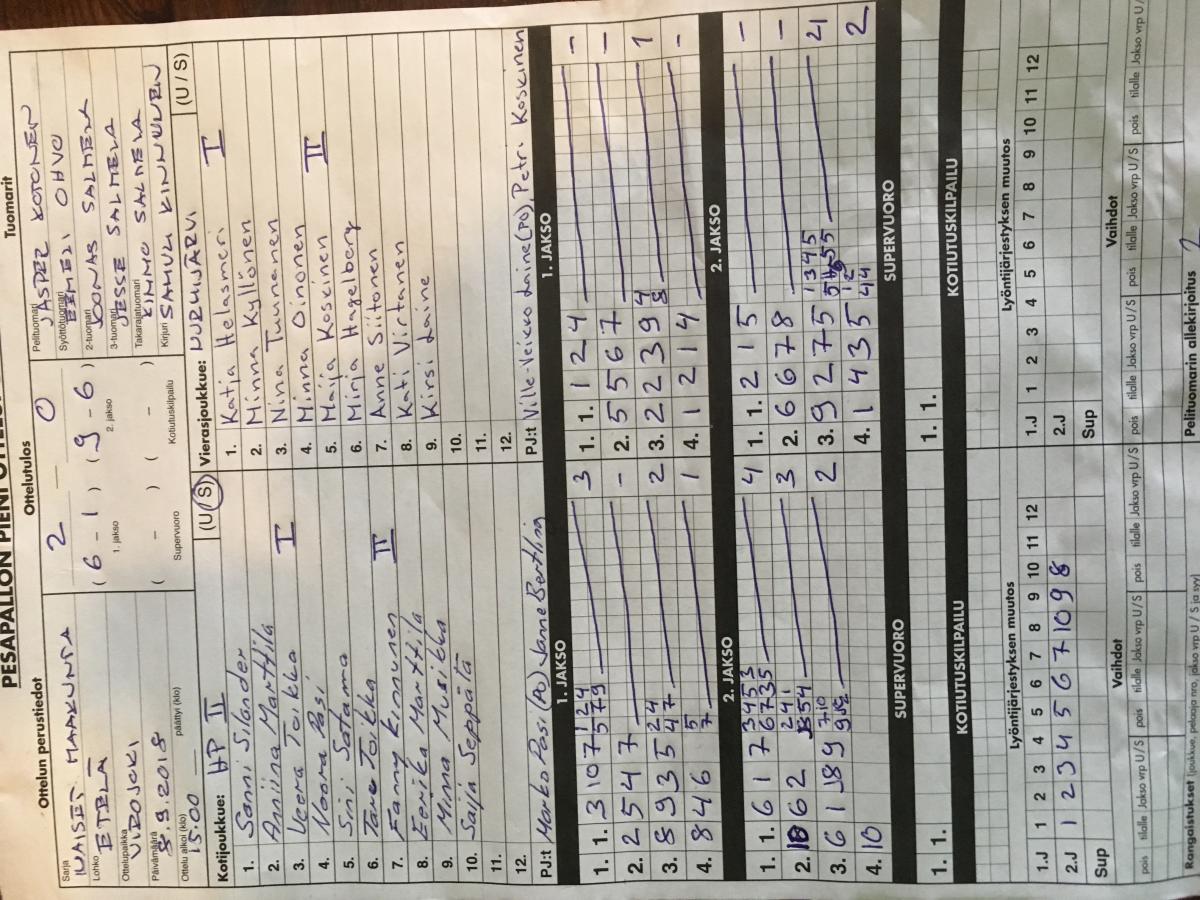 PESÄPALLON PIENI OTTELU
Ottelun perustiedot
Ottelutulos
Tuomarit
Sarja
NAISET MAAKUNTA
Lohko
ETELÄ
Ottelupaikka
VIROJOKI
Päivämäärä
8.9.2018
Ottelu alkoi (klo)
15.00
päättyi (klo)
2 — 0
( 6 - 1 ) ( 9 - 6 )
1. jakso 2. jakso
( - ) ( - )
Supervuoro Kotiutuskilpailu
Pelituomari
JASPER KOTONEN
Syöttötuomari
EEMELI OHVO
2-tuomari
JOONAS SALMELA
3-tuomari
JESSE SALMELA
Takarajatuomari
KIMMO SALMELA
Kirjuri
SAMULI KINNUNEN
Kotijoukkue: HP II (U / S)
1. Sanni Silander
2. Anniina Marttila
3. Veera Toikka I
4. Noora Pasi
5. Sini Satama
6. Taru Toikka
7. Fanny Kinnunen II
8. Eerika Marttila
9. Minna Musikka
10. Saija Seppätä
11.
12.
PJ:t Marko Pasi (PO) Janne Bertling
Vierasjoukkue: NURMIJÄRVI (U / S)
1. Katja Helasmeri I
2. Minna Kyllönen
3. Nina Tuunanen
4. Minna Oinonen II
5. Maija Koskinen
6. Minja Hagelberg
7. Anne Siitonen
8. Kati Virtanen
9. Kirsi Laine
10.
11.
12.
PJ:t Ville-Veikko Laine (PO), Petri Koskinen
1. JAKSO
1. 1. 3 10 7 1 2 4 5 7 9 3
2. 2 5 4 7 -
3. 8 9 3 5 2 4 4 7 2
4. 8 4 6 5 7 1
2. JAKSO
1. 1. 6 1 7 3 4 5 3 6 7 3 5 4
2. 10 6 2 3
3. 6 1 8 9 2
4. 10
SUPERVUORO
1. 1.
KOTIUTUSKILPAILU
1. JAKSO
1. 1. 1 2 4 -
2. 5 5 6 7 -
3. 2 2 3 9 4 8 1
4. 1 2 1 4 -
2. JAKSO
1. 1. 2 1 5 -
2. 6 6 7 8 -
3. 9 2 7 5 4
4. 1 4 3 5 2
SUPERVUORO
1. 1.
KOTIUTUSKILPAILU
Lyöntijärjestyksen muutos
1.J 1 2 3 4 5 6 7 8 9 10 11 12
2.J 1 2 3 4 5 6 7 10 9 8
Sup
Vaihdot
pois tilalle Jakso vrp U / S pois tilalle Jakso vrp U / S pois tilalle Jakso vrp U / S
Lyöntijärjestyksen muutos
1.J 1 2 3 4 5 6 7 8 9 10 11 12
2.J
Sup
Vaihdot
pois tilalle Jakso vrp U / S pois tilalle Jakso vrp U / S pois tilalle Jakso vrp U /
Rangaistukset (joukkue, pelaaja nro, jakso vrp U / S ja syy)
Pelituomarin allekirjoitus